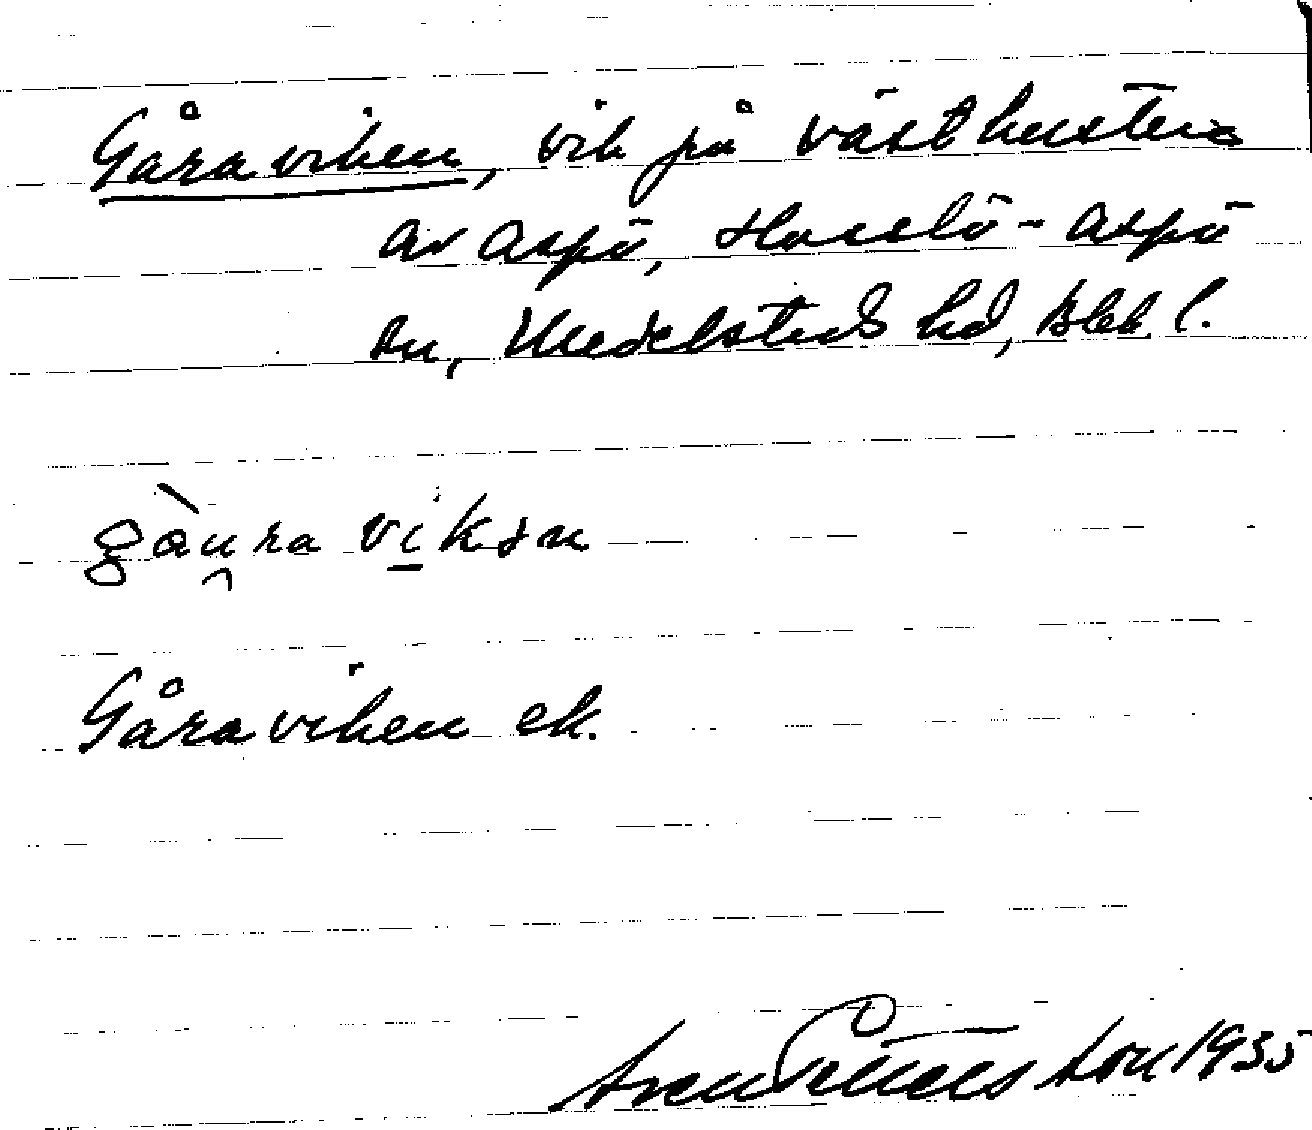 Gåraviken, vik på västkusten
av Aspö, Hasslö-Aspö
sn, Medelsteds hd, Blek. l.
gàu̯ra vikən
Gåraviken ek.
1935